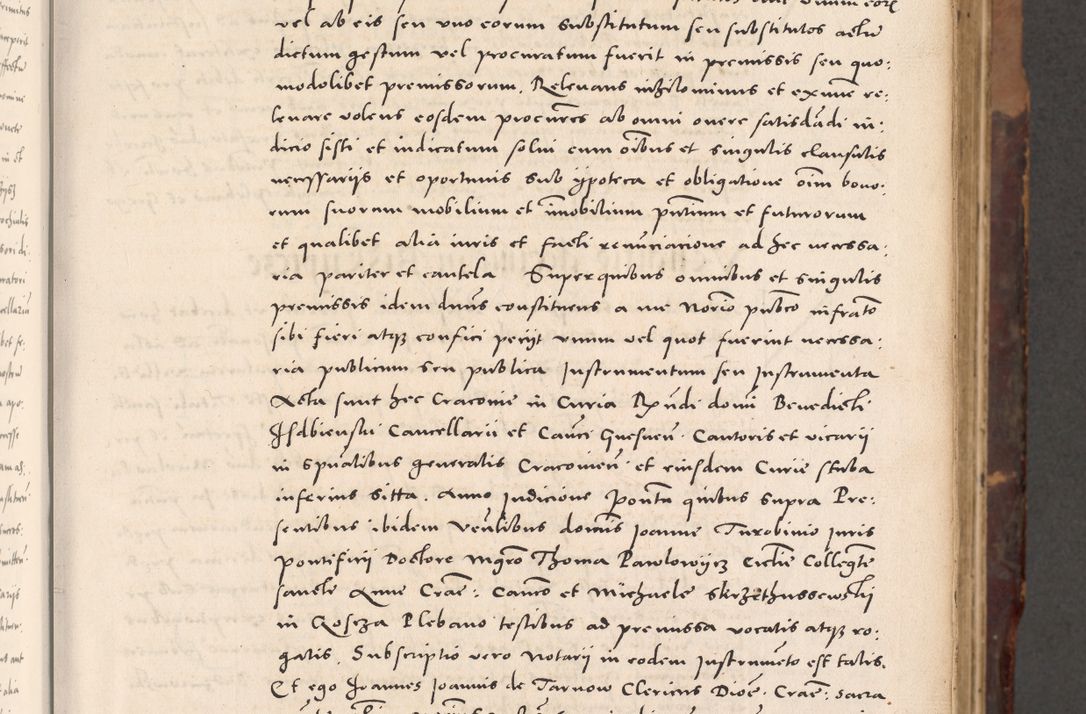 vel ab eis seu vno eorum substitutum seu substitutos actu
dictum gestum vel procuratum fuerit in premissis seu quo:
modolibet premissorum. Releuans nihilominus et exnunc re:
leuare volens eosdem procures ab omni onere satisdadi iu:
dicio sisti et iudicatum solui cum oibus et singulis clausulis
necessarijs et oportunis sub ypoteca et obligatione oim bono:
rum suorum mobilium et imobilium pntium et futurorum
et qualibet alia iuris et facti renunciacione ad hec necessa:
ria pariter et cautela Super quibus omnibus et singulis
premissis idem dnus constituens a me Norio pubco infrato
sibi fieri atq3 confici periit vnum vel quot fuerint necessa:
ria publicum seu publica Instrumentum seu Instrumenta
Acta sunt hec Cracouie in Curia Rndi domi Benedicti
Isdbienski Cancellarii et Cauci Gnesnen. Cantoris et vicarii
in spualibus generalis Cracouien et eiusdem Curie stuba
inferius sitta. Anno Indicione Pontu quibus supra Pre:
sentibus ibidem Venlibus domis Ioanne Turobinio Iuris
pontificii Doctore Mgro Thoma Pawlowijcz Eictie Collegte
sancte Anne Crac: Canco et Michaele Skrzethussewskij
in Qosza Plebano testibus ad premissa vocatis atq3 ro:
gatis. Subscriptio vero Notarii in eodem Instrumeto est talis.
Et ego Joannes Joannis de Tarnow Clericus Dioc: Crac: sacra